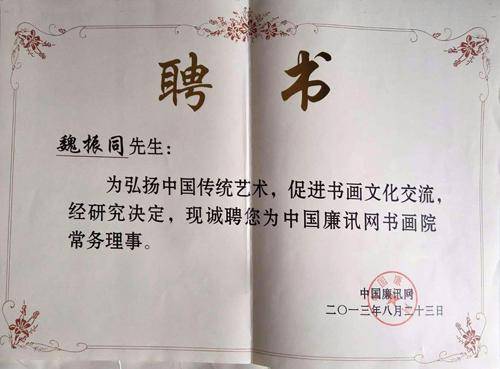 聘 书
魏振同先生：
为弘扬中国传统艺术，促进书画文化交流，
经研究决定，现诚聘您为中国廉讯网书画院
常务理事。
中国廉讯网
二〇一三年八月二十三日